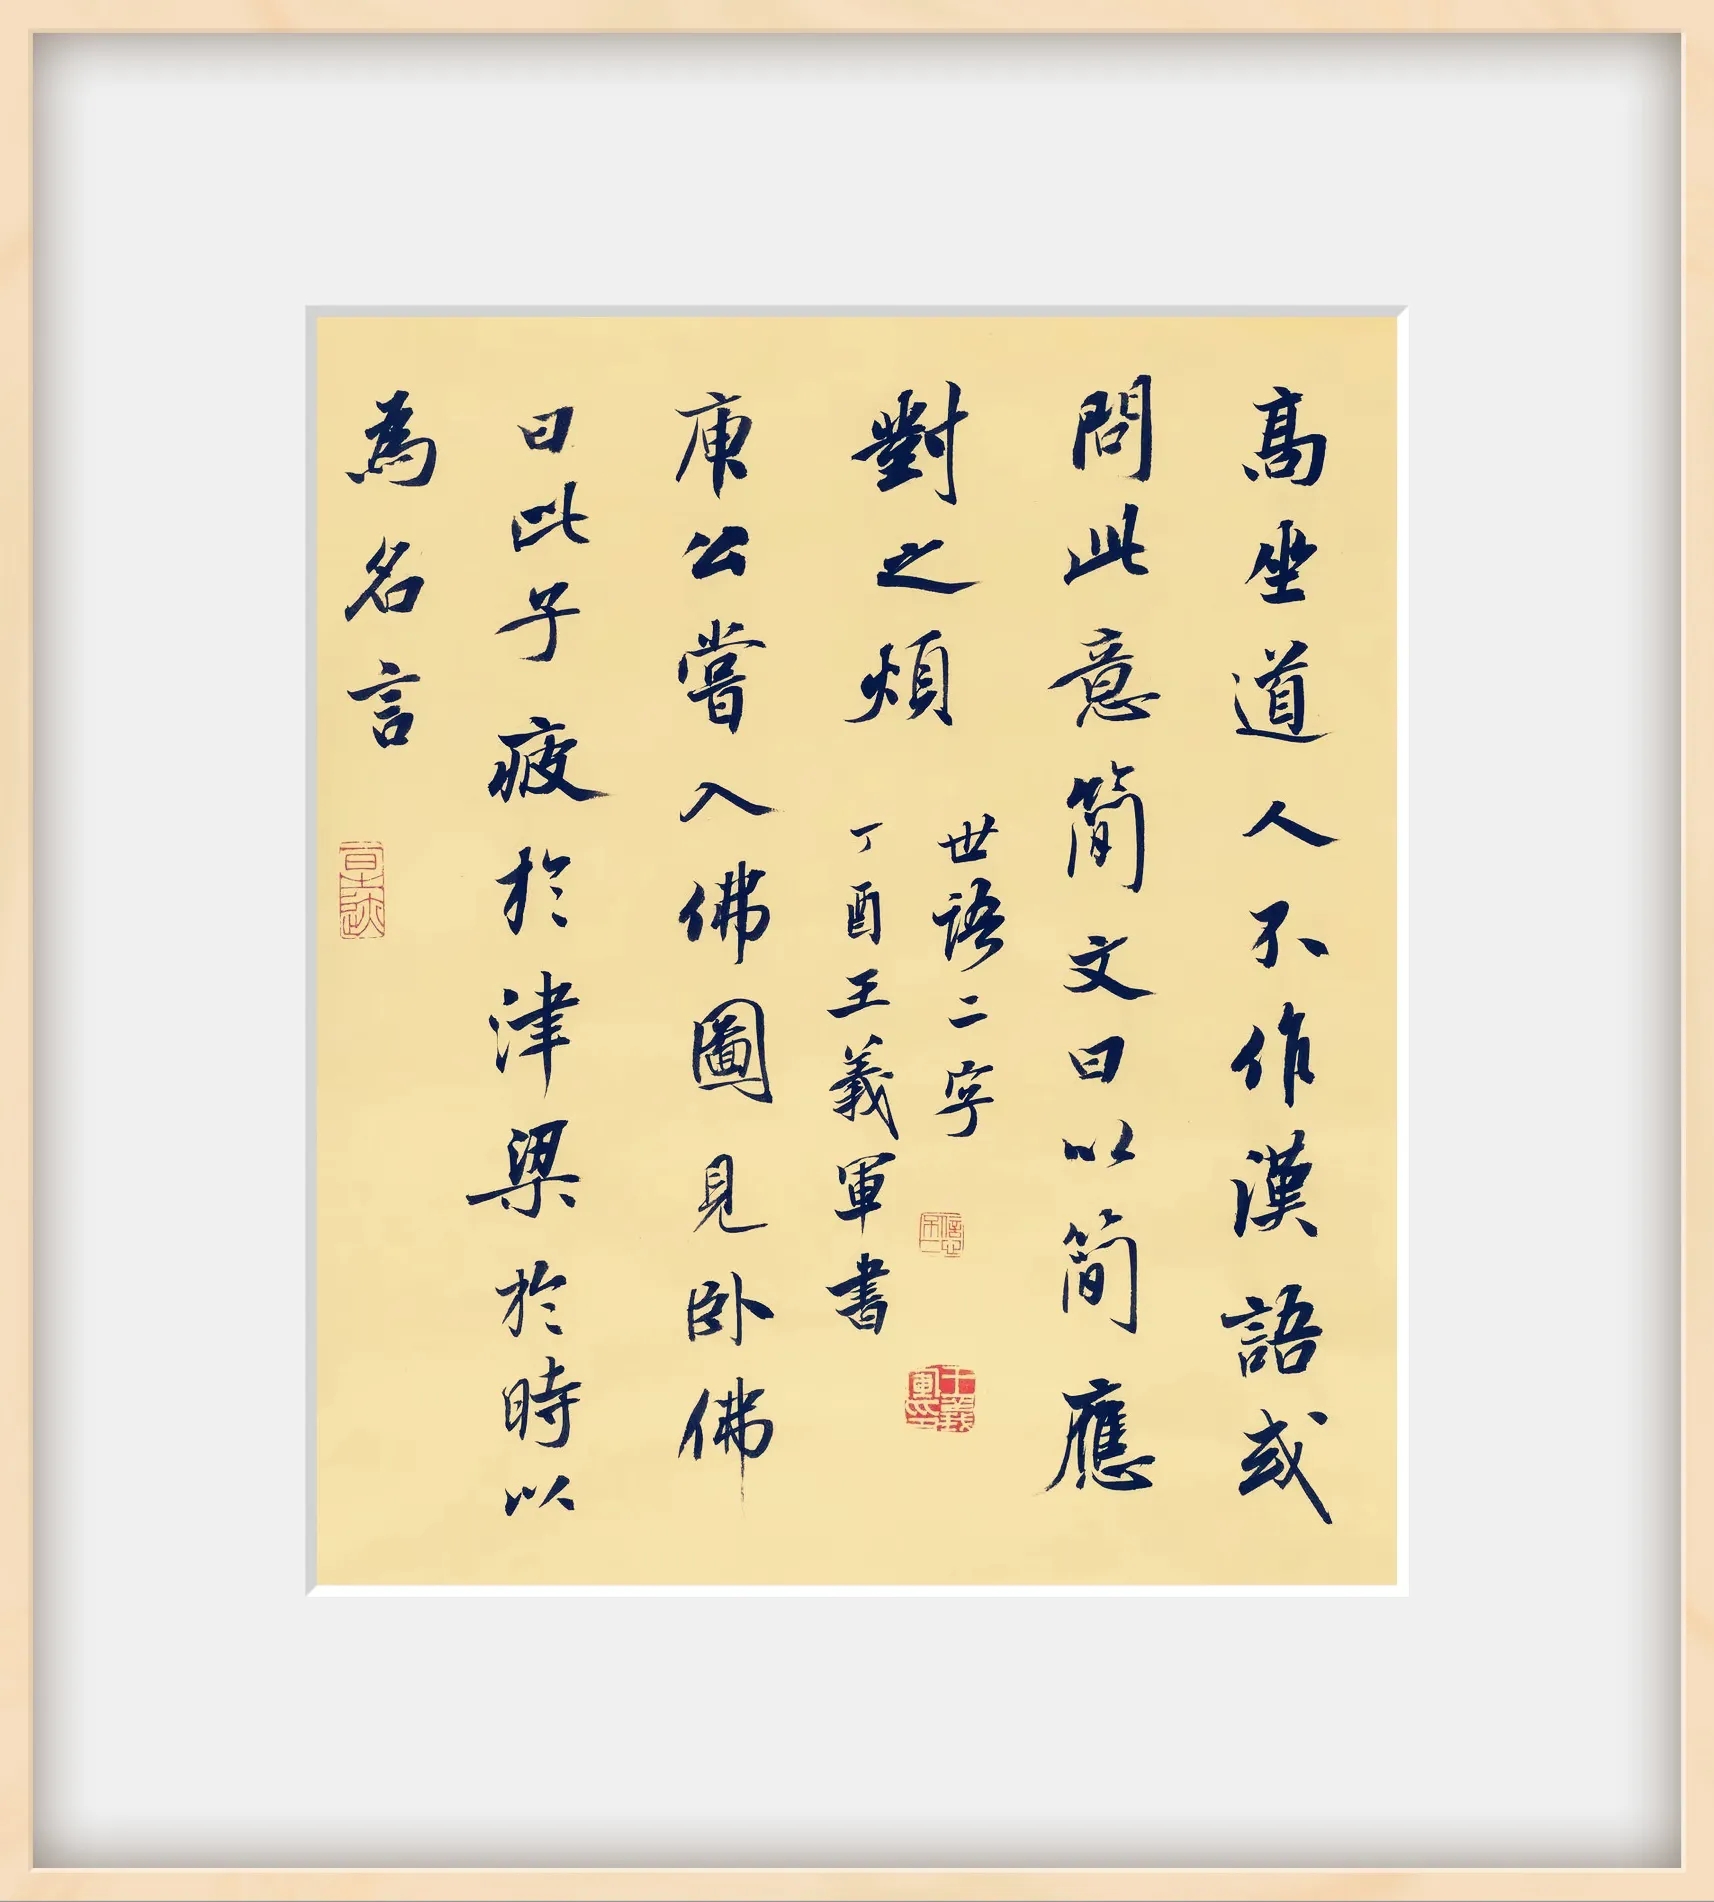 高坐道人不作漢語或
問此意簡文曰以簡應
對之煩
世語二字
丁酉王義軍書
王義軍印
庾公嘗入佛圖見卧佛
曰此子疲於津梁於時以
為名言